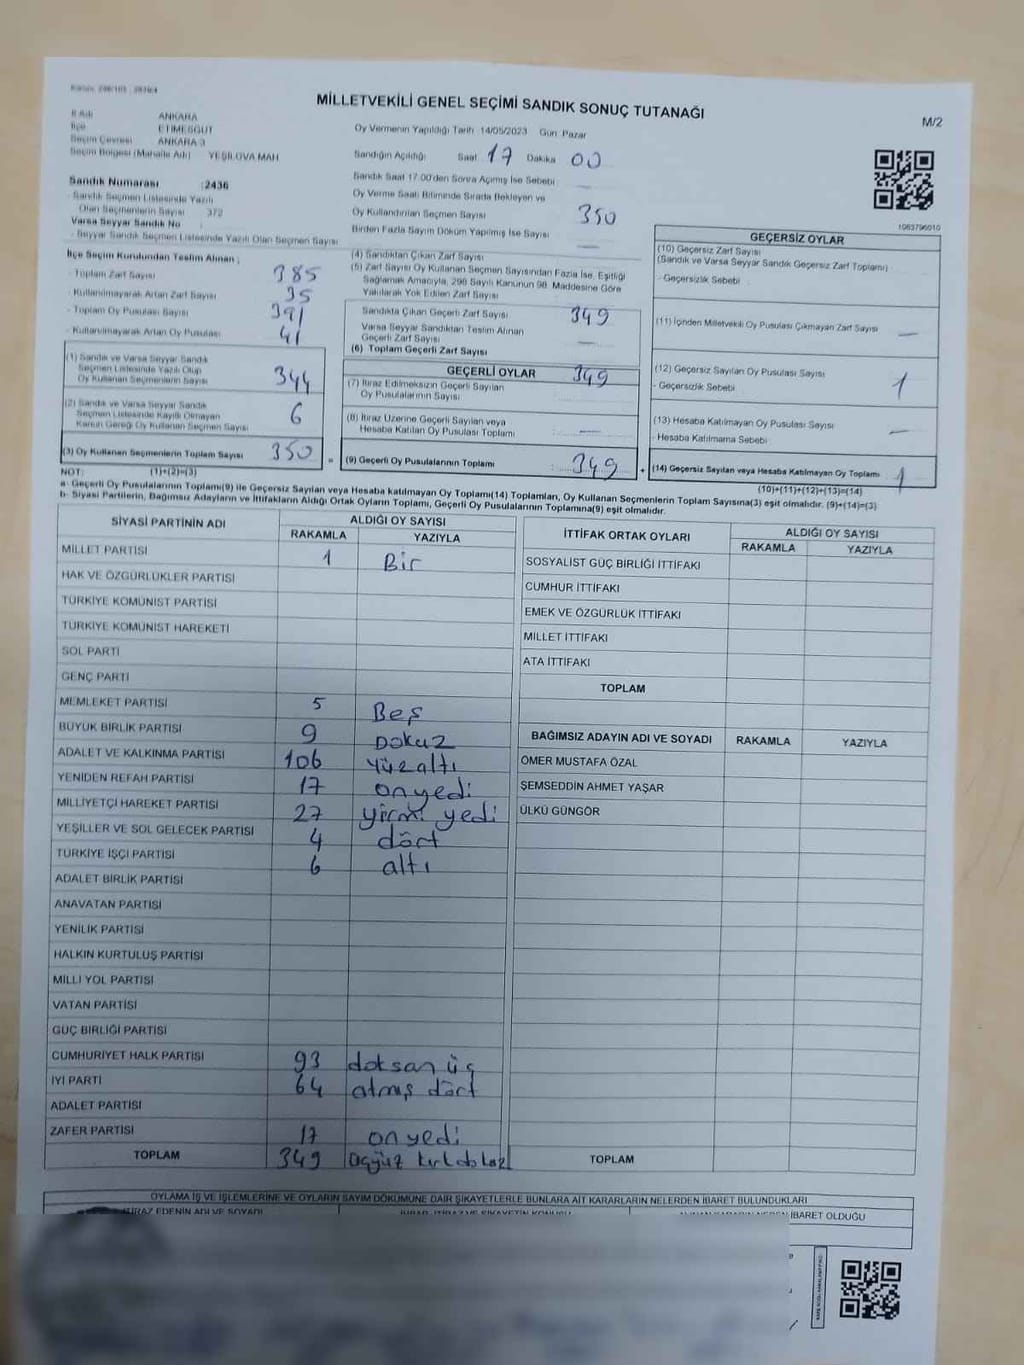 MİLLETVEKİLİ GENEL SEÇİMİ SANDIK SONUÇ TUTANAĞI
M/2
İl Adı ANKARA
İlçe ETİMESGUT
Seçim Çevresi ANKARA 3
Seçim Bölgesi (Mahalle Adı) YEŞİLOVA MAH
Sandık Numarası :2436
Sandık Seçmen Listesinde Yazılı
Olan Seçmenlerin Sayısı 372
Varsa Seyyar Sandık No
- Seyyar Sandık Seçmen Listesinde Yazılı Olan Seçmen Sayısı
Oy Vermenin Yapıldığı Tarih 14/05/2023 Gün Pazar
Sandığın Açıldığı: Saat 17 Dakika 00
Sandık Saat 17:00'den Sonra Açılmış İse Sebebi
Oy Verme Saati Bitiminde Sırada Bekleyen ve
Oy Kullandırılan Seçmen Sayısı 350
Birden Fazla Sayım Döküm Yapılmış İse Sayısı —
1083796010
İlçe Seçim Kurulundan Teslim Alınan ;
- Toplam Zarf Sayısı 385
- Kullanılmayarak Artan Zarf Sayısı 35
- Toplam Oy Pusulası Sayısı 391
- Kullanılmayarak Artan Oy Pusulası 41
(1) Sandık ve Varsa Seyyar Sandık
Seçmen Listesinde Yazılı Olup
Oy Kullanan Seçmenlerin Sayısı 344
(2) Sandık ve Varsa Seyyar Sandık
Seçmen Listesinde Kayıtlı Olmayan
Kanun Gereği Oy Kullanan Seçmen Sayısı 6
(3) Oy Kullanan Seçmenlerin Toplam Sayısı 350
(4) Sandıktan Çıkan Zarf Sayısı
(5) Zarf Sayısı Oy Kullanan Seçmen Sayısından Fazla İse, Eşitliği
Sağlamak Amacıyla, 298 Sayılı Kanunun 98. Maddesine Göre
Yakılarak Yok Edilen Zarf Sayısı
Sandıkta Çıkan Geçerli Zarf Sayısı 349
Varsa Seyyar Sandıktan Teslim Alınan
Geçerli Zarf Sayısı —
(6) Toplam Geçerli Zarf Sayısı
GEÇERLİ OYLAR 349
(7) İtiraz Edilmeksizin Geçerli Sayılan
Oy Pusulalarının Sayısı
(8) İtiraz Üzerine Geçerli Sayılan veya
Hesaba Katılan Oy Pusulası Toplamı —
(9) Geçerli Oy Pusulalarının Toplamı 349
GEÇERSİZ OYLAR
(10) Geçersiz Zarf Sayısı
(Sandık ve Varsa Seyyar Sandık Geçersiz Zarf Toplamı)
- Geçersizlik Sebebi
(11) İçinden Milletvekili Oy Pusulası Çıkmayan Zarf Sayısı —
(12) Geçersiz Sayılan Oy Pusulası Sayısı 1
- Geçersizlik Sebebi
(13) Hesaba Katılmayan Oy Pusulası Sayısı —
- Hesaba Katılmama Sebebi
(14) Geçersiz Sayılan veya Hesaba Katılmayan Oy Toplamı 1
NOT: (1)+(2)=(3)
(10)+(11)+(12)+(13)=(14)
a- Geçerli Oy Pusulalarının Toplamı(9) ile Geçersiz Sayılan veya Hesaba katılmayan Oy Toplamı(14) Toplamları, Oy Kullanan Seçmenlerin Toplam Sayısına(3) eşit olmalıdır. (9)+(14)=(3)
b- Siyasi Partilerin, Bağımsız Adayların ve İttifakların Aldığı Ortak Oyların Toplamı, Geçerli Oy Pusulalarının Toplamına(9) eşit olmalıdır.
SİYASİ PARTİNİN ADI ALDIĞI OY SAYISI
RAKAMLA YAZIYLA
MİLLET PARTİSİ 1 Bir
HAK VE ÖZGÜRLÜKLER PARTİSİ
TÜRKİYE KOMÜNİST PARTİSİ
TÜRKİYE KOMÜNİST HAREKETİ
SOL PARTİ
GENÇ PARTİ
MEMLEKET PARTİSİ 5 Beş
BÜYÜK BİRLİK PARTİSİ 9 Dokuz
ADALET VE KALKINMA PARTİSİ 106 yüzaltı
YENİDEN REFAH PARTİSİ 17 onyedi
MİLLİYETÇİ HAREKET PARTİSİ 27 yirmi yedi
YEŞİLLER VE SOL GELECEK PARTİSİ 4 dört
TÜRKİYE İŞÇİ PARTİSİ 6 altı
ADALET BİRLİK PARTİSİ
ANAVATAN PARTİSİ
YENİLİK PARTİSİ
HALKIN KURTULUŞ PARTİSİ
MİLLİ YOL PARTİSİ
VATAN PARTİSİ
GÜÇ BİRLİĞİ PARTİSİ
CUMHURİYET HALK PARTİSİ 93 doksan üç
İYİ PARTİ 64 atmış dört
ADALET PARTİSİ
ZAFER PARTİSİ 17 onyedi
TOPLAM 349
İTTİFAK ORTAK OYLARI ALDIĞI OY SAYISI
RAKAMLA YAZIYLA
SOSYALİST GÜÇ BİRLİĞİ İTTİFAKI
CUMHUR İTTİFAKI
EMEK VE ÖZGÜRLÜK İTTİFAKI
MİLLET İTTİFAKI
ATA İTTİFAKI
TOPLAM
BAĞIMSIZ ADAYIN ADI VE SOYADI RAKAMLA YAZIYLA
ÖMER MUSTAFA ÖZAL
ŞEMSEDDİN AHMET YAŞAR
ÜLKÜ GÜNGÖR
TOPLAM
OYLAMA İŞ VE İŞLEMLERİNE VE OYLARIN SAYIM DÖKÜMÜNE DAİR ŞİKAYETLERLE BUNLARA AİT KARARLARIN NELERDEN İBARET BULUNDUKLARI
İTİRAZ EDENİN ADI VE SOYADI
İBARET OLDUĞU